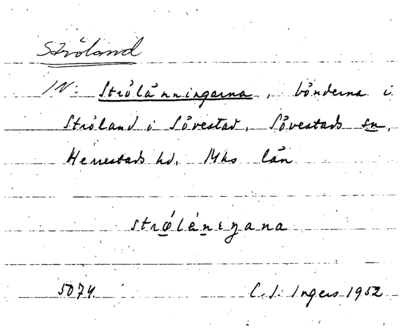 Ströland
IN: Strölänningarna, bönderna i
Ströland i Sövestad, Sövestads sn,
Herrestads hd, Mhs län
strǿlániṇana
5074. C. I. Ingers 1952